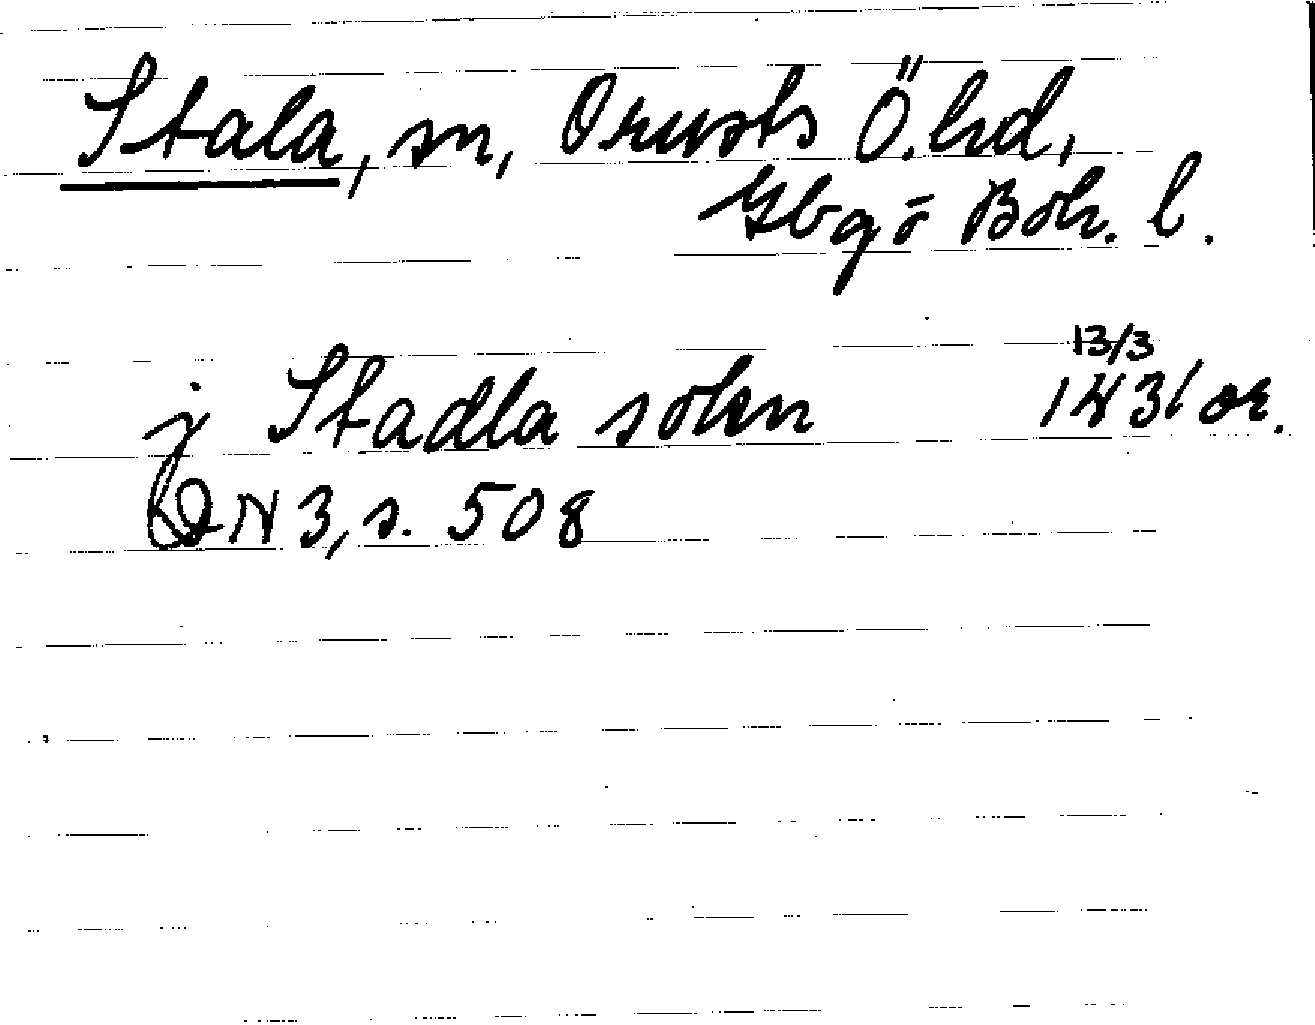 Stala, sn, Orusts Ö. hd,
Gbg o Boh. l.
j Stadla sokn 13/3 1431 or.
DN 3, s. 508